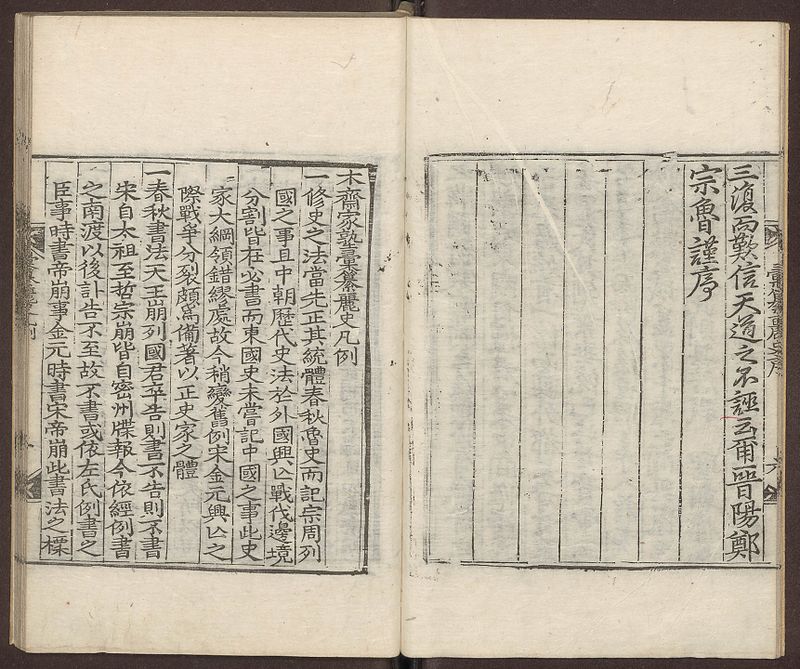 三復而歎信天道之不誣云爾晉陽鄭
宗魯謹序
木齋家塾彙纂麗史凡例
一修史之法當先正其統體春秋魯史而記宗周列
國之事且中朝歷代史法於外國興亡戰伐邊境
分割皆在必書而東國史未嘗記中國之事此史
家大綱領錯繆處故今稍變舊例宋金元興亡之
際戰爭分裂頗爲備著以正史家之體
一春秋書法天王崩列國君卒告則書不告則不書
宋自太祖至哲宗崩皆自密州牒報今依經例書
之南渡以後訃告不至故不書或依左氏例書之
臣事時書帝崩事金元時書宋帝崩此書法之櫽